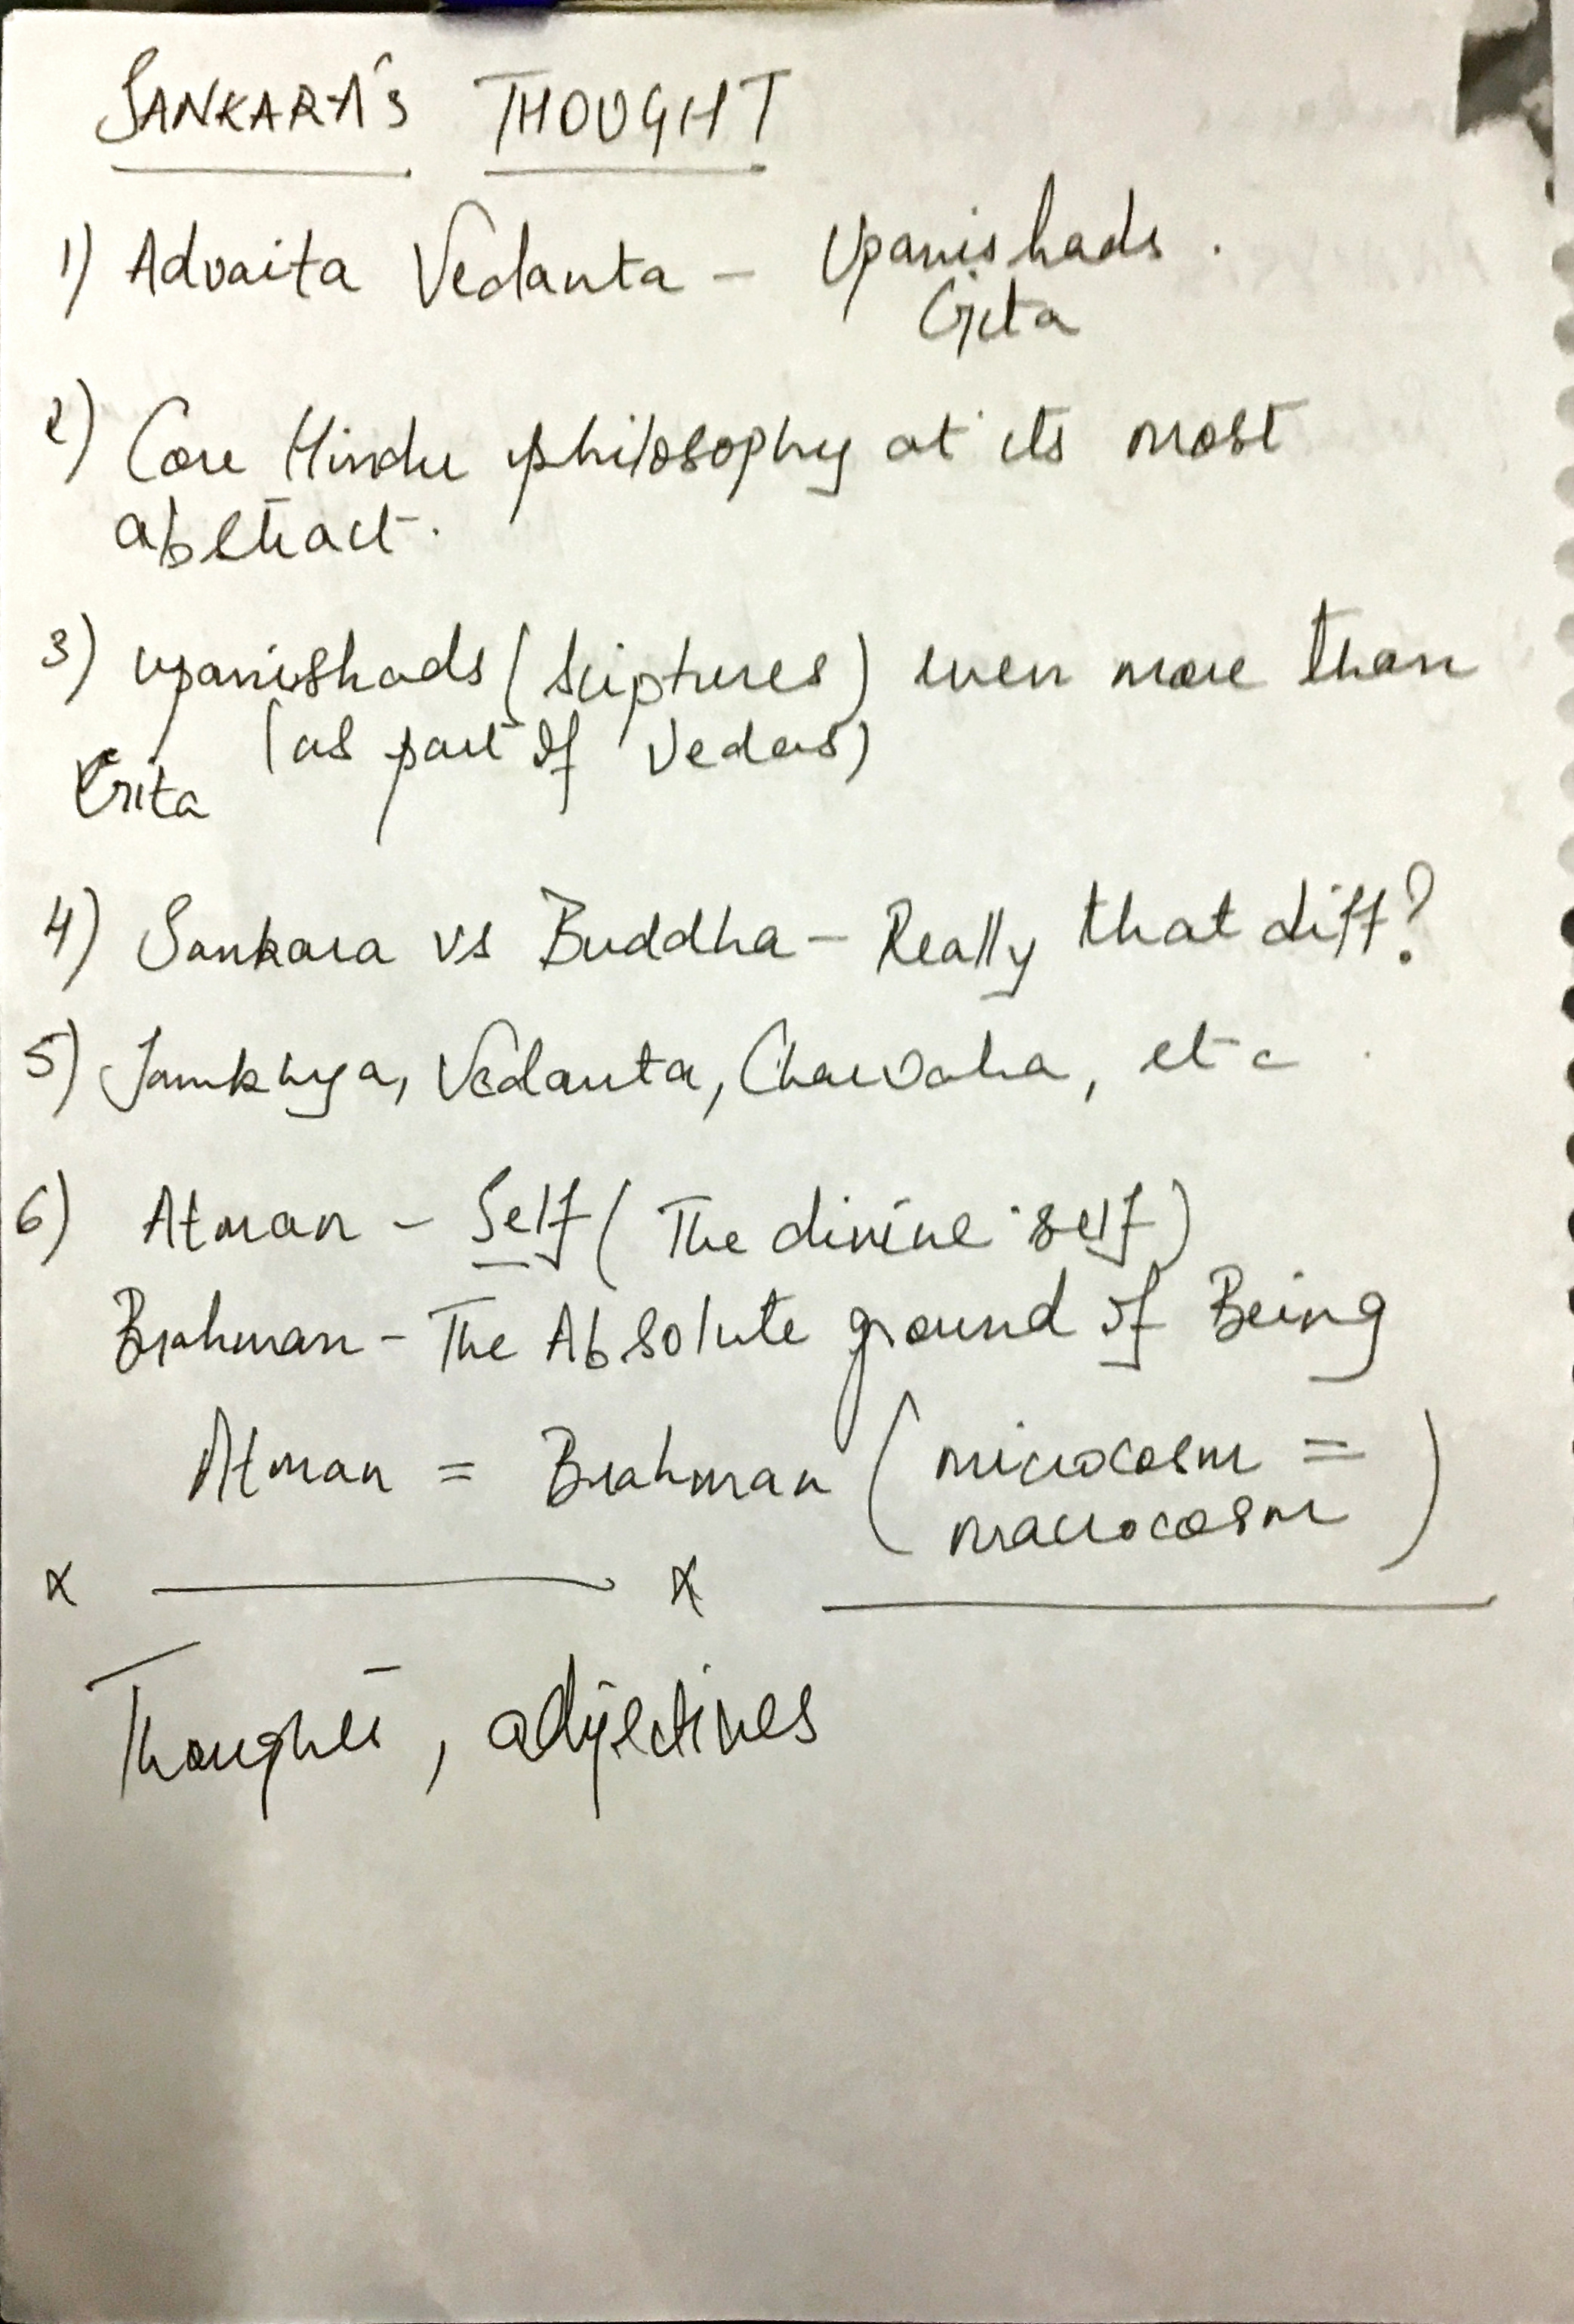 SANKARA'S THOUGHT
1) Advaita Vedanta - Upanishads.
Gita
2) Core Hindu philosophy at its most
abstract.
3) Upanishads (scriptures) even more than
(as part of Vedas)
Gita
4) Sankara vs Buddha - Really that diff?
5) Samkhya, Vedanta, Charvaka, etc.
6) Atman - Self (The divine self)
Brahman - The Absolute ground of Being
Atman = Brahman (microcosm =
macrocosm)
x x
Thoughts, adjectives